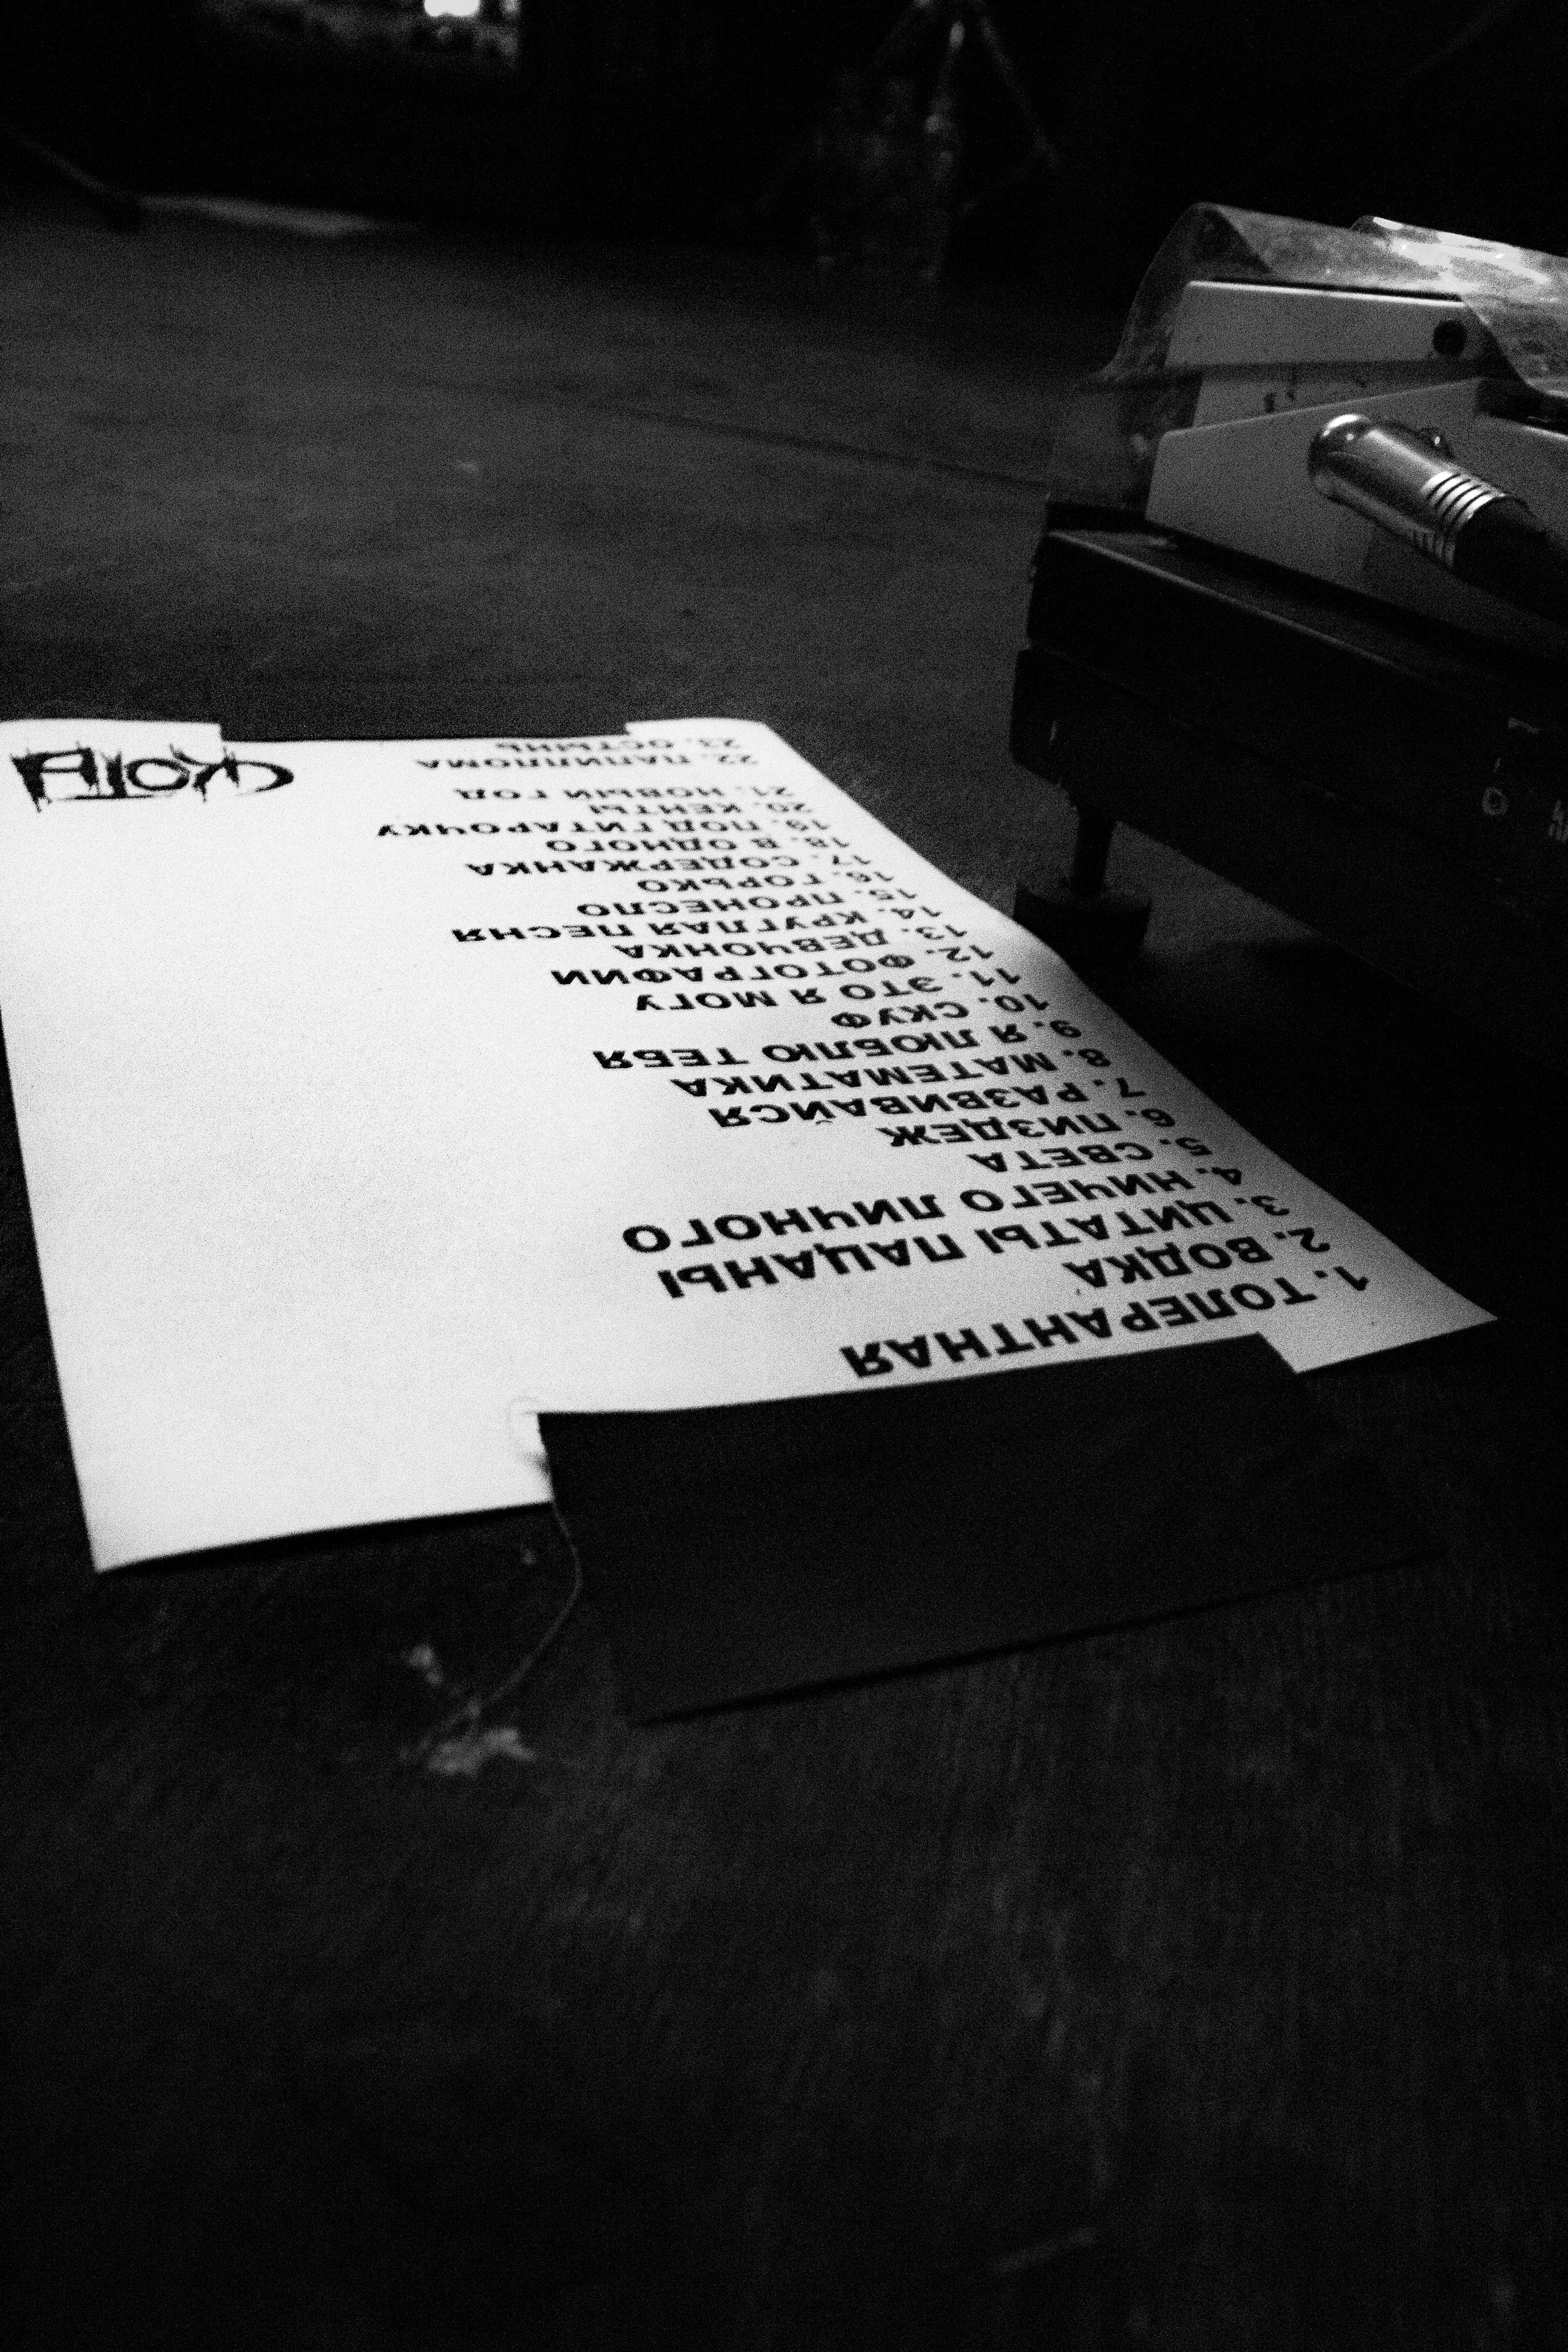 1. ТОЛЕРАНТНАЯ
2. ВОДКА
3. ЦИТАТЫ ПАЦАНЫ
4. НИЧЕГО ЛИЧНОГО
5. СВЕТА
6. ПИЗДЕЖ
7. РАЗВИВАЙСЯ
8. МАТЕМАТИКА
9. Я ЛЮБЛЮ ТЕБЯ
10. СКУФ
11. ЭТО Я МОГУ
12. ФОТОГРАФИИ
13. ДЕВЧОНКА
14. КРУГЛАЯ ПЕСНЯ
15. ПРОНЕСЛО
16. ГОРЬКО
17. СОДЕРЖАНКА
18. В ОДНОГО
19. ПОД ГИТАРОЧКУ
20. КЕНТЫ
21. НОВЫЙ ГОД
22. ПАПИЛЛОМА
23. ОСТЫНЬ